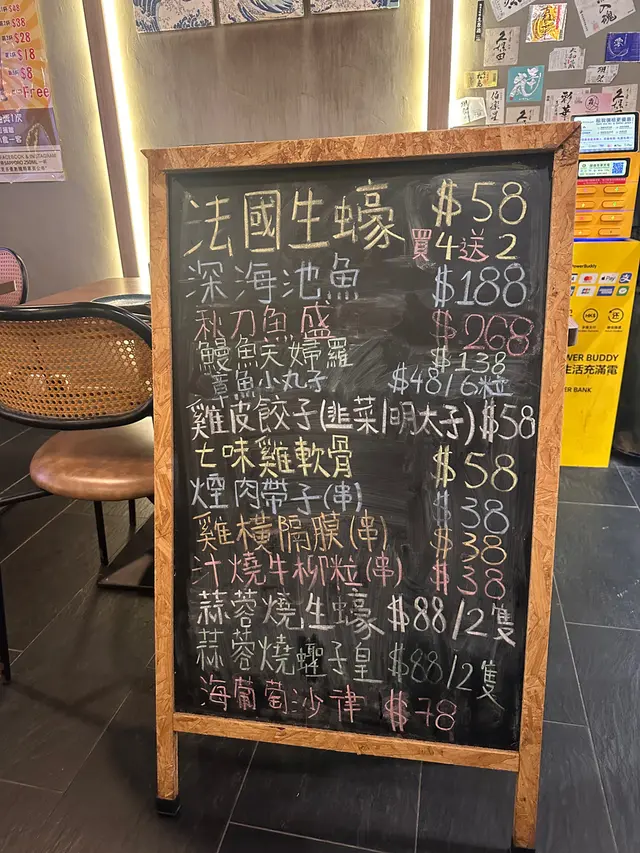 $48
$38
$28
$18
$8
Free
法國生蠔 $58
買4送2
深海池魚 $188
秋刀魚盛 $268
鰻魚天婦羅 $138
章魚小丸子 $48/6粒
雞皮餃子(韭菜/明太子) $58
七味雞軟骨 $58
煙肉帶子(串) $38
雞橫隔膜(串) $38
汁燒牛柳粒(串) $38
蒜蓉燒生蠔 $88/2隻
蒜蓉燒蟶子皇 $88/2隻
海葡萄沙律 $78
久保田
PowerBuddy
POWER BUDDY
生活充滿電
POWER BANK